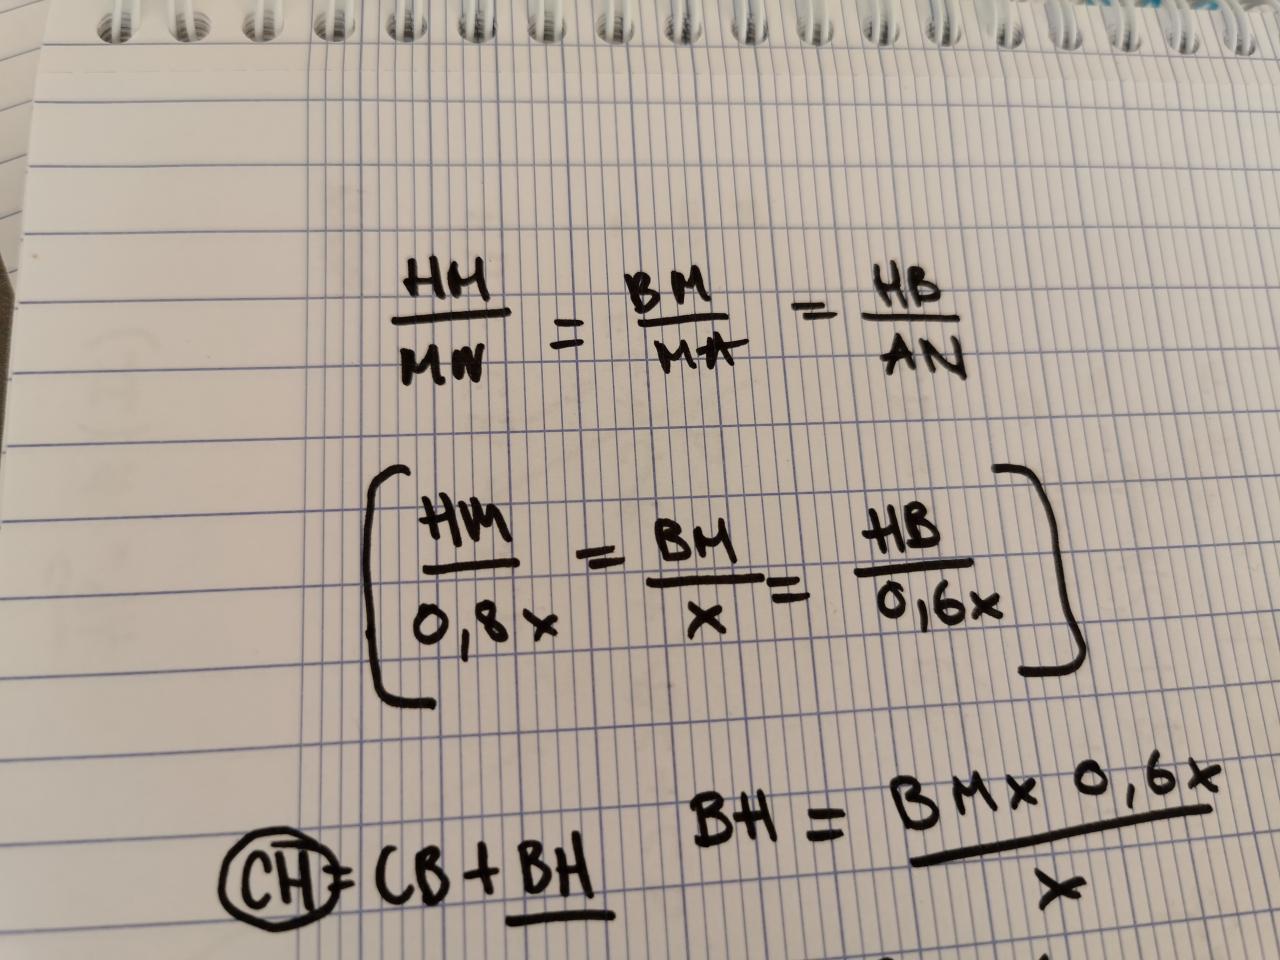 HM/MN = BM/MA = HB/AN
[HM/0,8x = BM/x = HB/0,6x]
BH = BM x 0,6x / x
CH = CB + BH